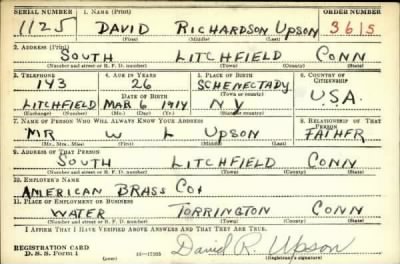 SERIAL NUMBER 1. NAME (Print) ORDER NUMBER
1125 DAVID RICHARDSON UPSON 3615
(First) (Middle) (Last)
2. ADDRESS (Print)
SOUTH LITCHFIELD CONN
(Number and street or R. F. D. number) (Town) (County) (State)
3. TELEPHONE 4. AGE IN YEARS 5. PLACE OF BIRTH 6. COUNTRY OF CITIZENSHIP
143 26 SCHENECTADY
DATE OF BIRTH (Town or county) U.S.A.
LITCHFIELD MAR 6 1914 NY
(Exchange) (Number) (Mo.) (Day) (Yr.) (State or country)
7. NAME OF PERSON WHO WILL ALWAYS KNOW YOUR ADDRESS 8. RELATIONSHIP OF THAT PERSON
MR W L UPSON FATHER
(Mr., Mrs., Miss) (First) (Middle) (Last)
9. ADDRESS OF THAT PERSON
SOUTH LITCHFIELD CONN
(Number and street or R. F. D. number) (Town) (County) (State)
10. EMPLOYER'S NAME
AMERICAN BRASS CO.
11. PLACE OF EMPLOYMENT OR BUSINESS
WATER TORRINGTON CONN
(Number and street or R. F. D. number) (Town) (County) (State)
I AFFIRM THAT I HAVE VERIFIED ABOVE ANSWERS AND THAT THEY ARE TRUE.
REGISTRATION CARD David R. Upson
D. S. S. Form 1 (Registrant's signature)